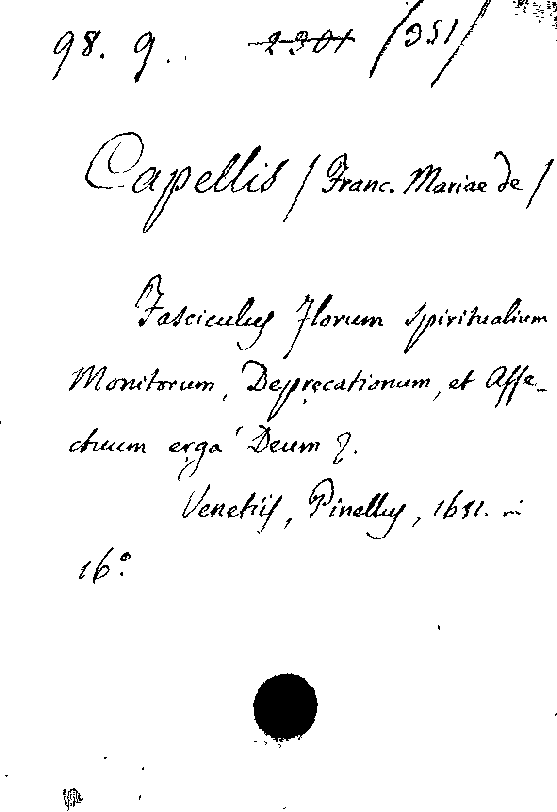 98. 9. 2301 /351/
Capellis /Franc. Mariae de/
Fasciculus Florum spiritualium
Monitorum, Deprecationum, et Affe-
ctuum erga Deum
Venetiis, Pinellus, 1651. in
16°